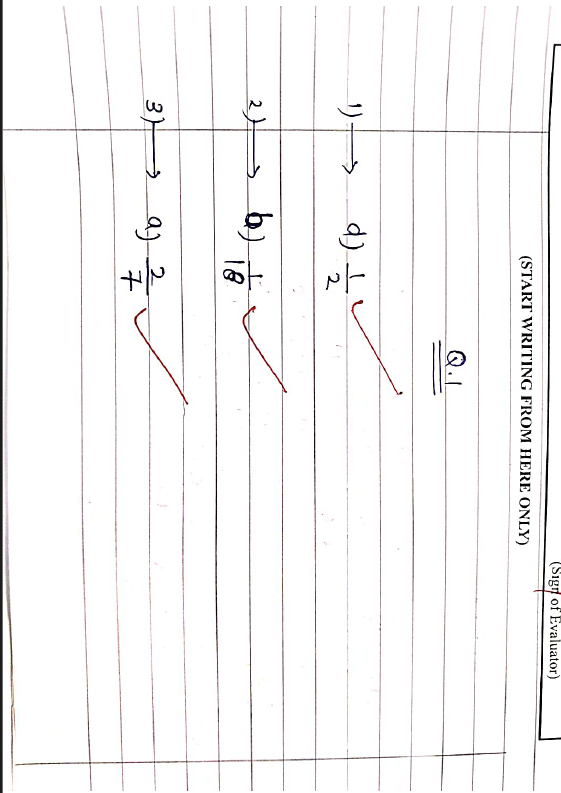 (Sign of Evaluator)
(START WRITING FROM HERE ONLY)
Q.1
1) → d) 1/2
2) → b) 1/18
3) → a) 2/7